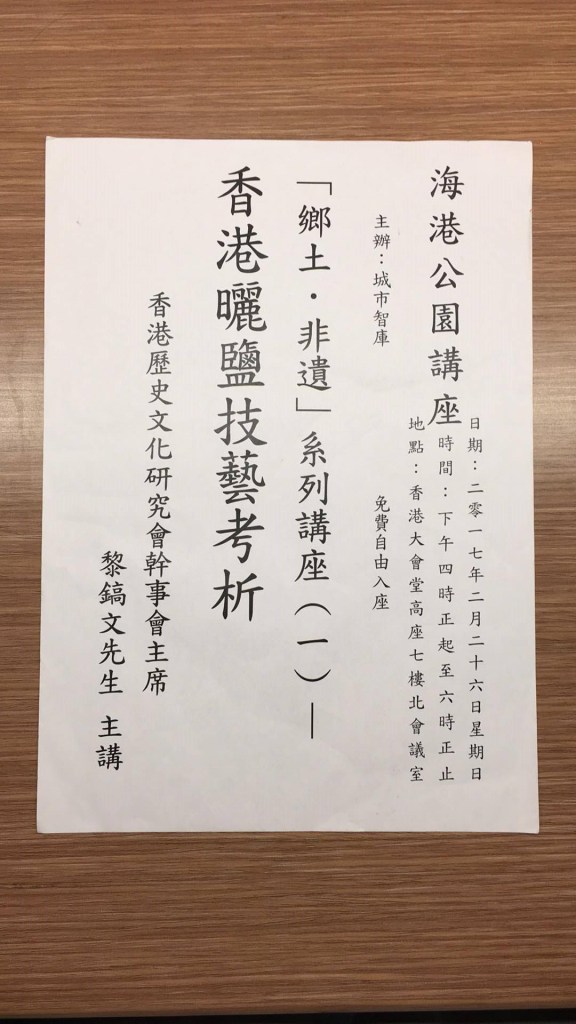 海港公園講座
日期：二零一七年二月二十六日星期日
時間：下午四時正起至六時正止
地點：香港大會堂高座七樓北會議室
主辦：城市智庫
免費自由入座
「鄉土．非遺」系列講座（一）—
香港曬鹽技藝考析
香港歷史文化研究會幹事會主席
黎鎬文先生 主講